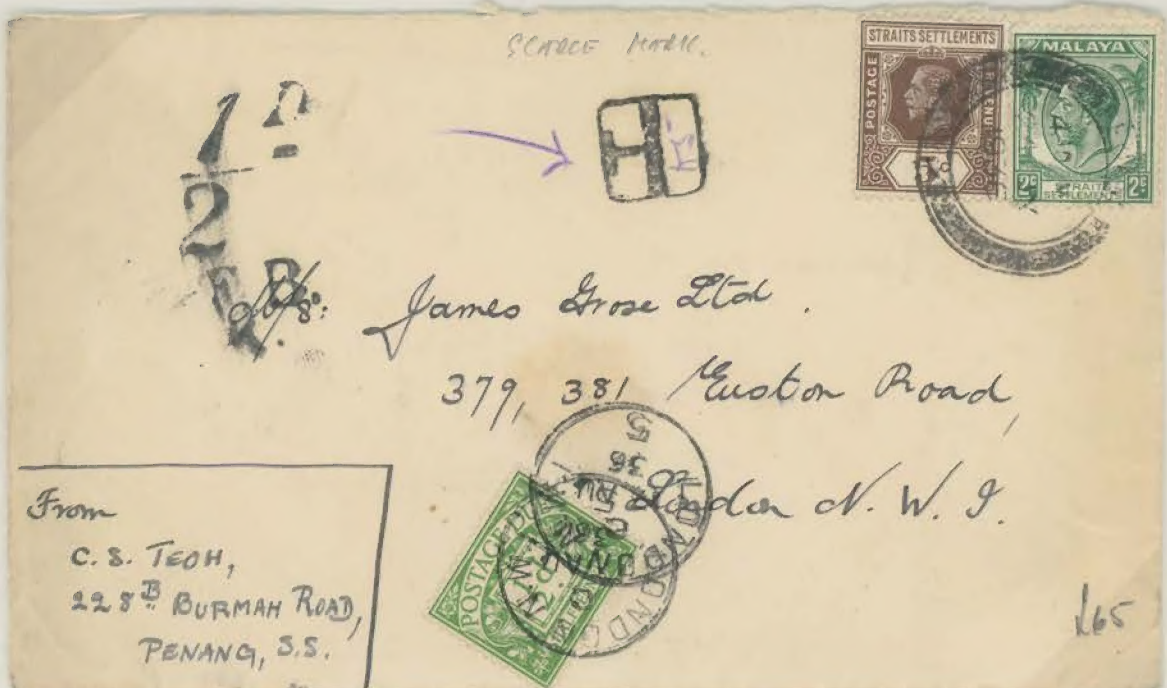 SCARCE MARK.
1D
2
T
STRAITS SETTLEMENTS
POSTAGE
REVENUE
1c
MALAYA
2c 2c
STRAITS SETTLEMENTS
James Grose Ltd.
379, 381 Euston Road,
London N. W. I.
From
C. S. TEOH,
228B BURMAH ROAD,
PENANG, S.S.
POSTAGE DUE
LONDON
36
N.W.
£65